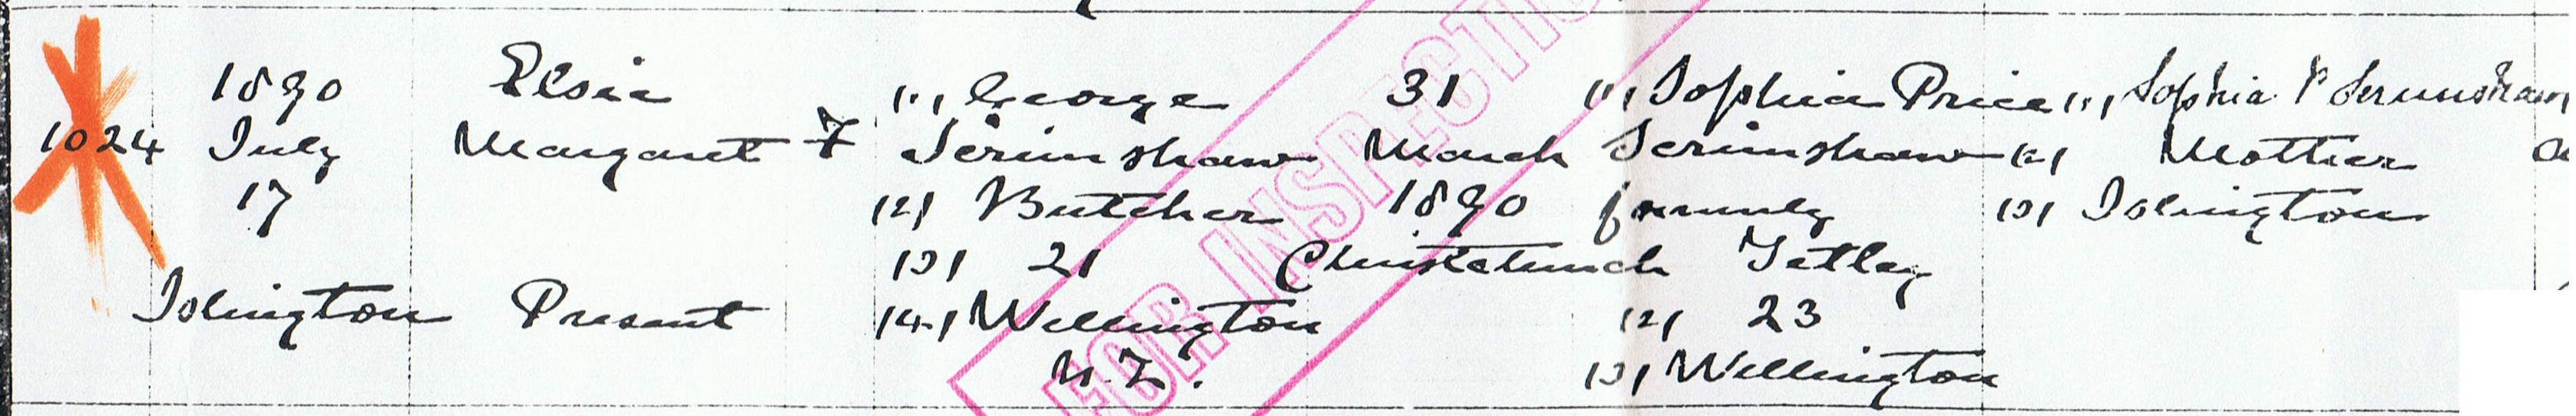 1890 Elsie (1) George 31 (1) Sophia Price (1) Sophia P Scrimshaw
1024 July Margaret F Scrimshaw March Scrimshaw (2) Mother
17 (2) Butcher 1890 formerly (3) Islington
(3) 21 Christchurch Tetley
Islington Present (4) Wellington (2) 23
N.Z. (3) Wellington
FOR INSPECTIO